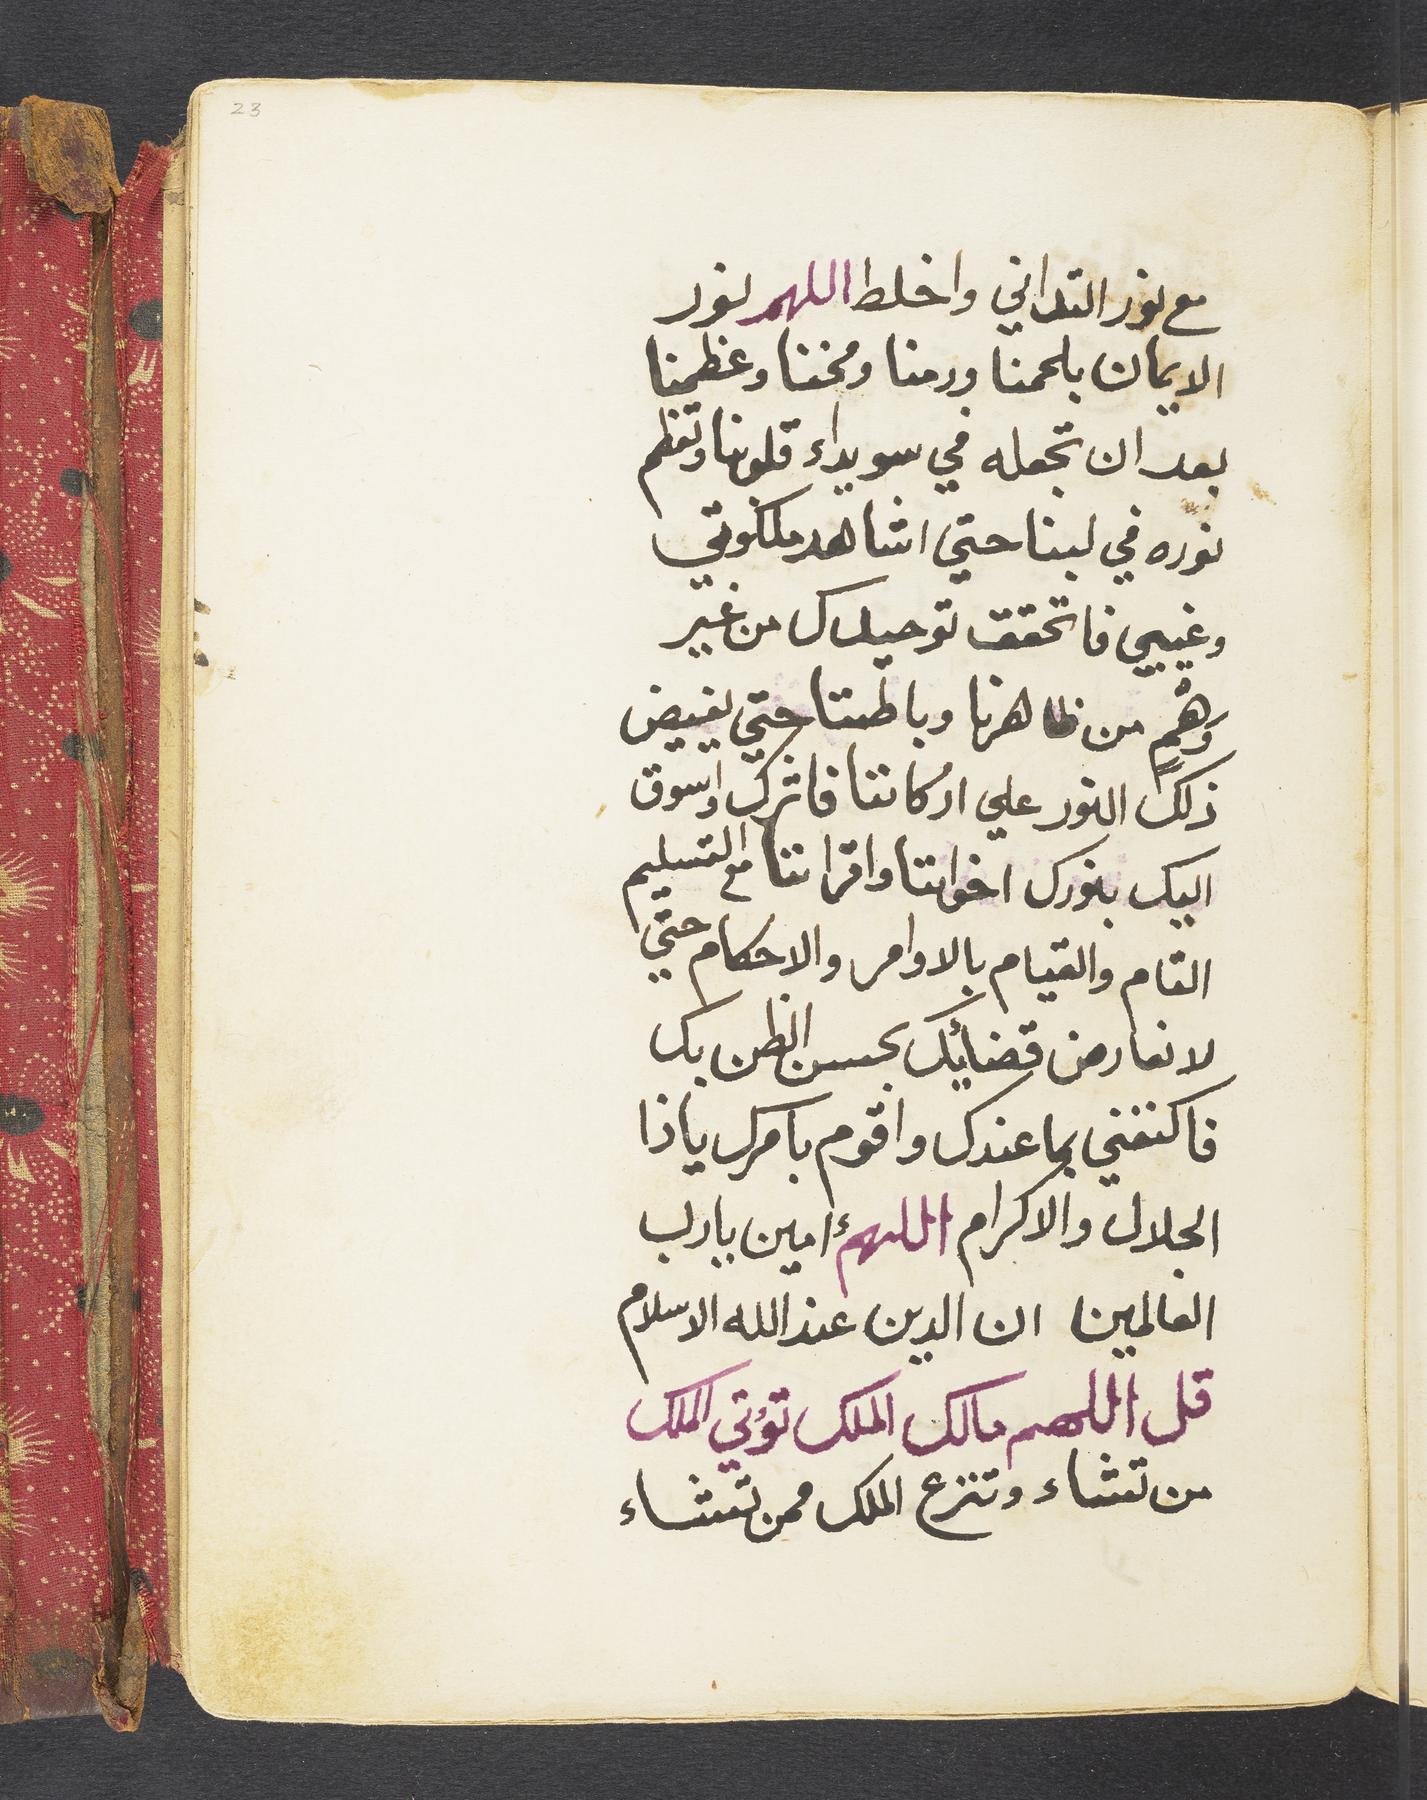 23
مع نور التداني واخلط اللهم نور
الايمان بلحمنا ودمنا ومخنا وعظمنا
بعد ان تجعله في سويداء قلوبنا وتعظم
نوره في لبنا حتي اشاهد ملكوتي
وغيبي فاتحقق توحيدك من غير
وَهْمٍ من ظاهرنا وباطننا حتي يفيض
ذلك النور علي اركاننا فاترك واسوق
اليك بنورك اخواننا واقراننا مع التسليم
التام والقيام بالاوامر والاحكام حتي
لا نعارض قضائك بحسن الظن بك
فاكتفني بما عندك واقوم بامرك ياذا
الجلال والاكرام اللهم ءامين يارب
العالمين ان الدين عند الله الاسلام
قل اللهم مالك الملك تؤتي الملك
من تشاء وتنزع الملك ممن تشاء